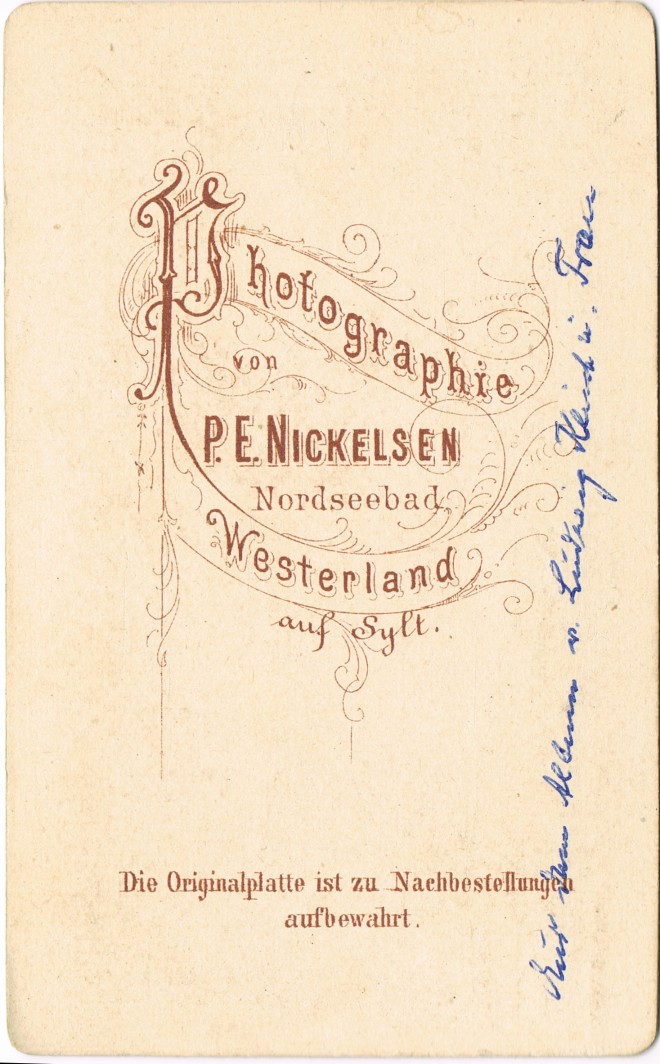 Photographie
von
P. E. NICKELSEN
Nordseebad
Westerland
auf Sylt.
Die Originalplatte ist zu Nachbestellungen
aufbewahrt.
Aus dem Album v. Ludwig u. Frau